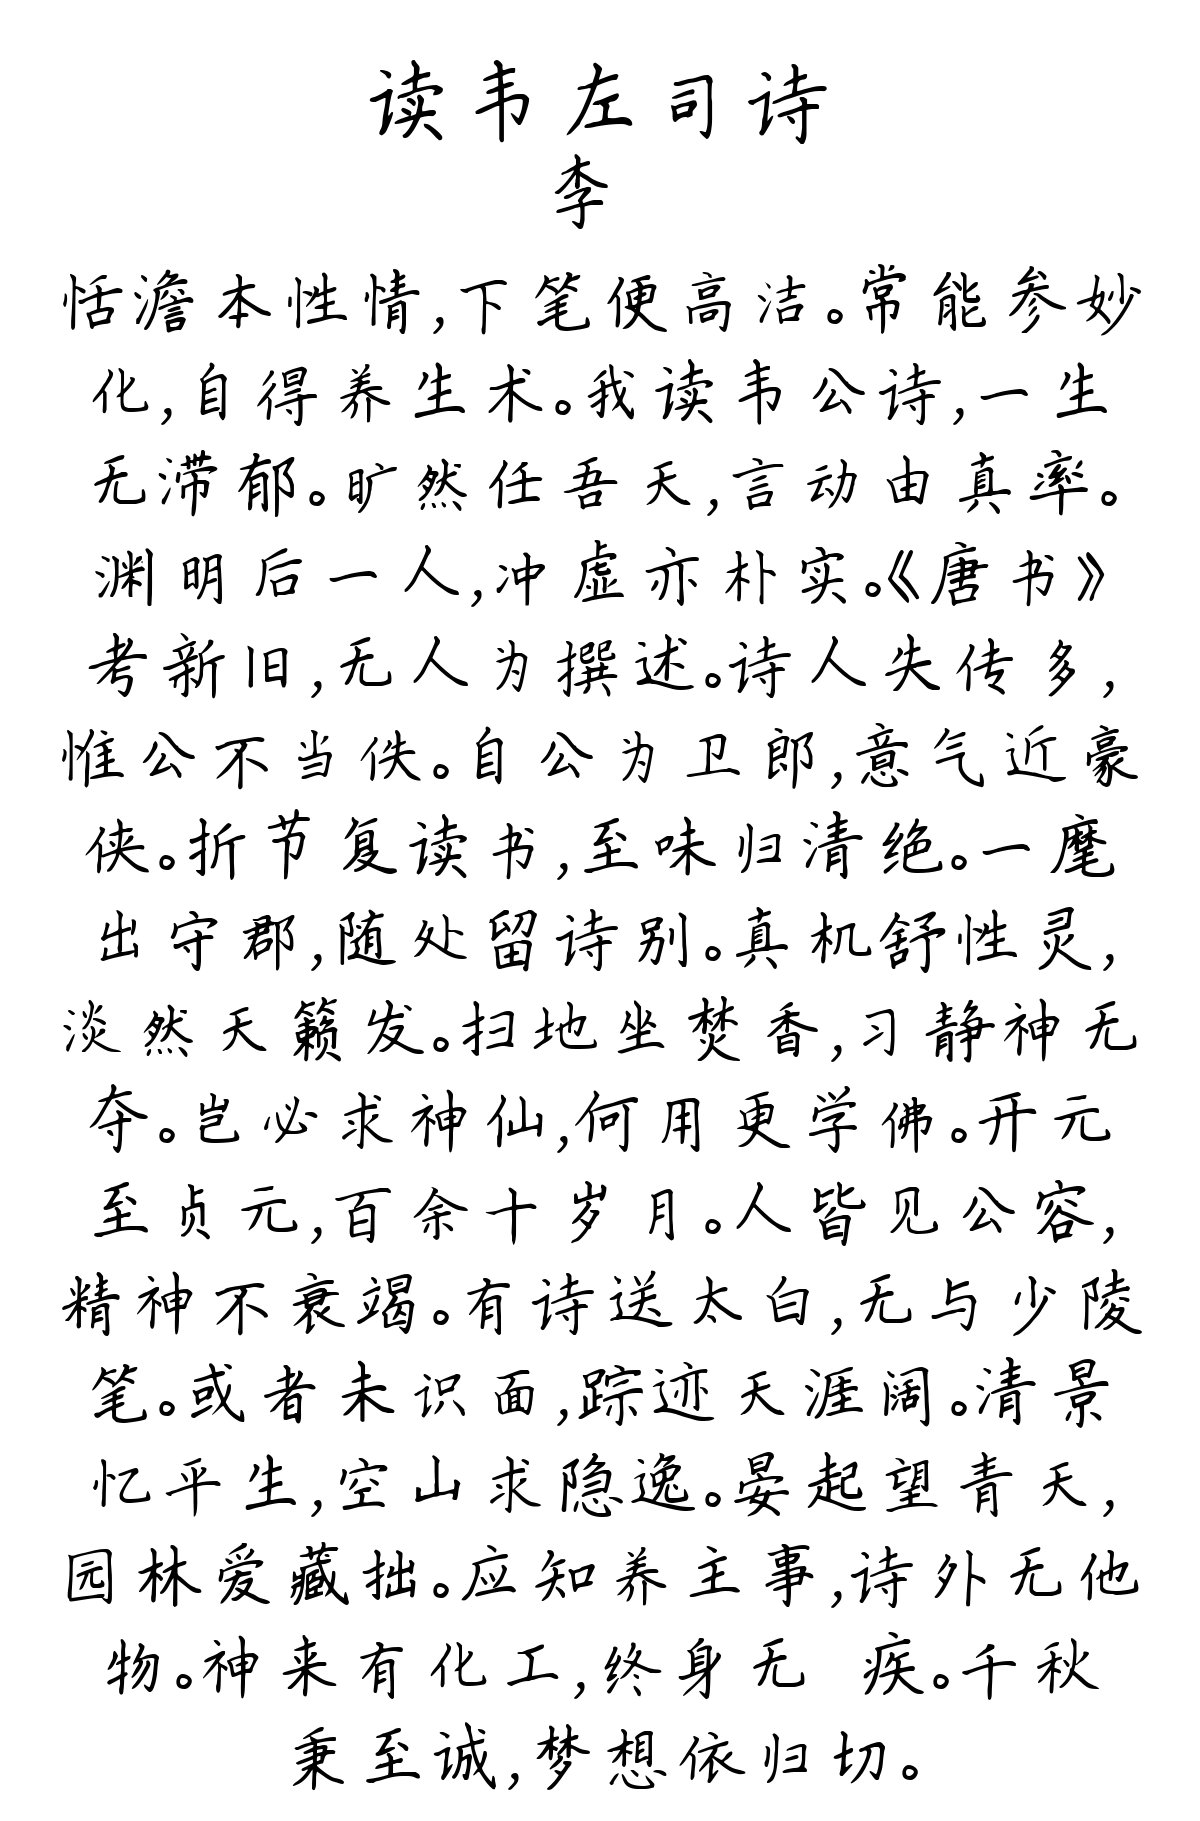 读韦左司诗
李
恬澹本性情,下笔便高洁。常能参妙
化,自得养生术。我读韦公诗,一生
无滞郁。旷然任吾天,言动由真率。
渊明后一人,冲虚亦朴实。《唐书》
考新旧,无人为撰述。诗人失传多,
惟公不当佚。自公为卫郎,意气近豪
侠。折节复读书,至味归清绝。一麾
出守郡,随处留诗别。真机舒性灵,
淡然天籁发。扫地坐焚香,习静神无
夺。岂必求神仙,何用更学佛。开元
至贞元,百余十岁月。人皆见公容,
精神不衰竭。有诗送太白,无与少陵
笔。或者未识面,踪迹天涯阔。清景
忆平生,空山求隐逸。晏起望青天,
园林爱藏拙。应知养主事,诗外无他
物。神来有化工,终身无 疾。千秋
秉至诚,梦想依归切。